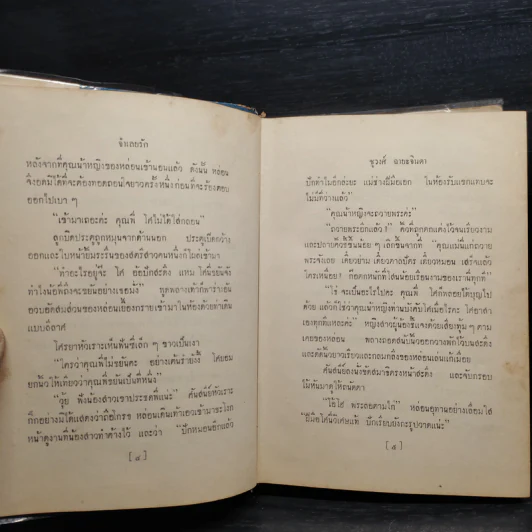 จำเลยรัก
หลังจากที่คุณน้าหญิงของหล่อนเข้านอนแล้ว ดังนั้น หล่อน
จึงอดมิได้ที่จะต้องทอดถอนใจยาวครั้งหนึ่งก่อนที่จะร้องตอบ
ออกไปเบา ๆ
"เข้ามาเถอะค่ะ คุณพี่ ใศไม่ได้ใส่กลอน"
ลูกบิดประตูถูกหมุนจากด้านนอก ประตูเปิดกว้าง
ออกและใบหน้ายิ้มระรื่นของสตรีสาวคนหนึ่งก็โผล่เข้ามา
"ทำอะไรอยู่จ๊ะ ใศ
ทำไมน้องพี่ถึงจะขยันอย่างเธอมั่ง" พูดพลางเท้าก็พาร่างอัน
อวบอัดสมส่วนของหล่อนเยื้องกรายเข้ามาในห้องด้วยท่าเดิน
แบบลีลาศ
ใศรยาหัวเราะเห็นฟันซี่เล็ก ๆ ขาวเป็นเงา
"ใครว่าคุณพี่ไม่ขยันคะ อย่างเต้นรำยังงี้ ใศยอม
ยกนิ้วให้เทียวว่าคุณพี่ขยันเป็นที่หนึ่ง"
"วุ้ย ฟังน้องสาวเขาประชดพี่แน่ะ" ศันสนีย์หัวเราะ
กิ๊กอย่างมิได้แสดงว่าถือโกรธ หล่อนเดินเท้าเอวเข้ามาชะโงก
หน้าดูงานที่น้องสาวทำค้างไว้ และว่า "ปักหมอนอีกแล้ว
[ ๘ ]
ชูวงศ์ ฉายะจินดา
ปักทำไมอีกล่ะยะ แม่ช่างฝีมือเอก ในห้องรับแขกแทบจะ
ไม่มีที่วางแล้ว"
"คุณน้าหญิงจะถวายพระค่ะ"
"ถวายพระอีกแล้ว!" คิ้วที่ถูกกันแต่งไว้จนเรียวงาม
และปลายคิ้วชี้ขึ้นน้อย ๆ เลิกขึ้นจากที่ "คุณแม่นี่แก่ถวาย
พระจังเลย เดี๋ยวย่าม เดี๋ยวตาลปัตร เดี๋ยวหมอน เสร็จแล้ว
ใครเหนื่อย?
"ใช่ จะเป็นอะไรไปคะ คุณพี่ ใศก็พลอยได้บุญไป
ด้วย แล้วก็ใช่ว่าคุณน้าหญิงท่านบังคับใศเมื่อไรคะ ใศอาสา
เองทุกทีแหละค่ะ" หญิงสาวผู้น้องชี้แจงด้วยเสียงทุ้ม ๆ ตาม
เคยของหล่อน พลางถอดสนับนิ้วออกวางพักไว้บนสะดึง
และดัดนิ้วยาวเรียวและกลมกลึงของหล่อนเล่นแก้เมื่อย
ศันสนีย์ถึงนั่งขัดสมาธิตรงหน้าสะดึง และจับกรอบ
ไม้หันมาดูให้ถนัดตา
"โอ้โฮ พระถอดามไถ่" หล่อนอุทานอย่างเลื่อมใส
"ฝีมือใศนี่วิเศษแท้ ปักเรียบยังกะรูปวาดแน่ะ"
[ ๙ ]